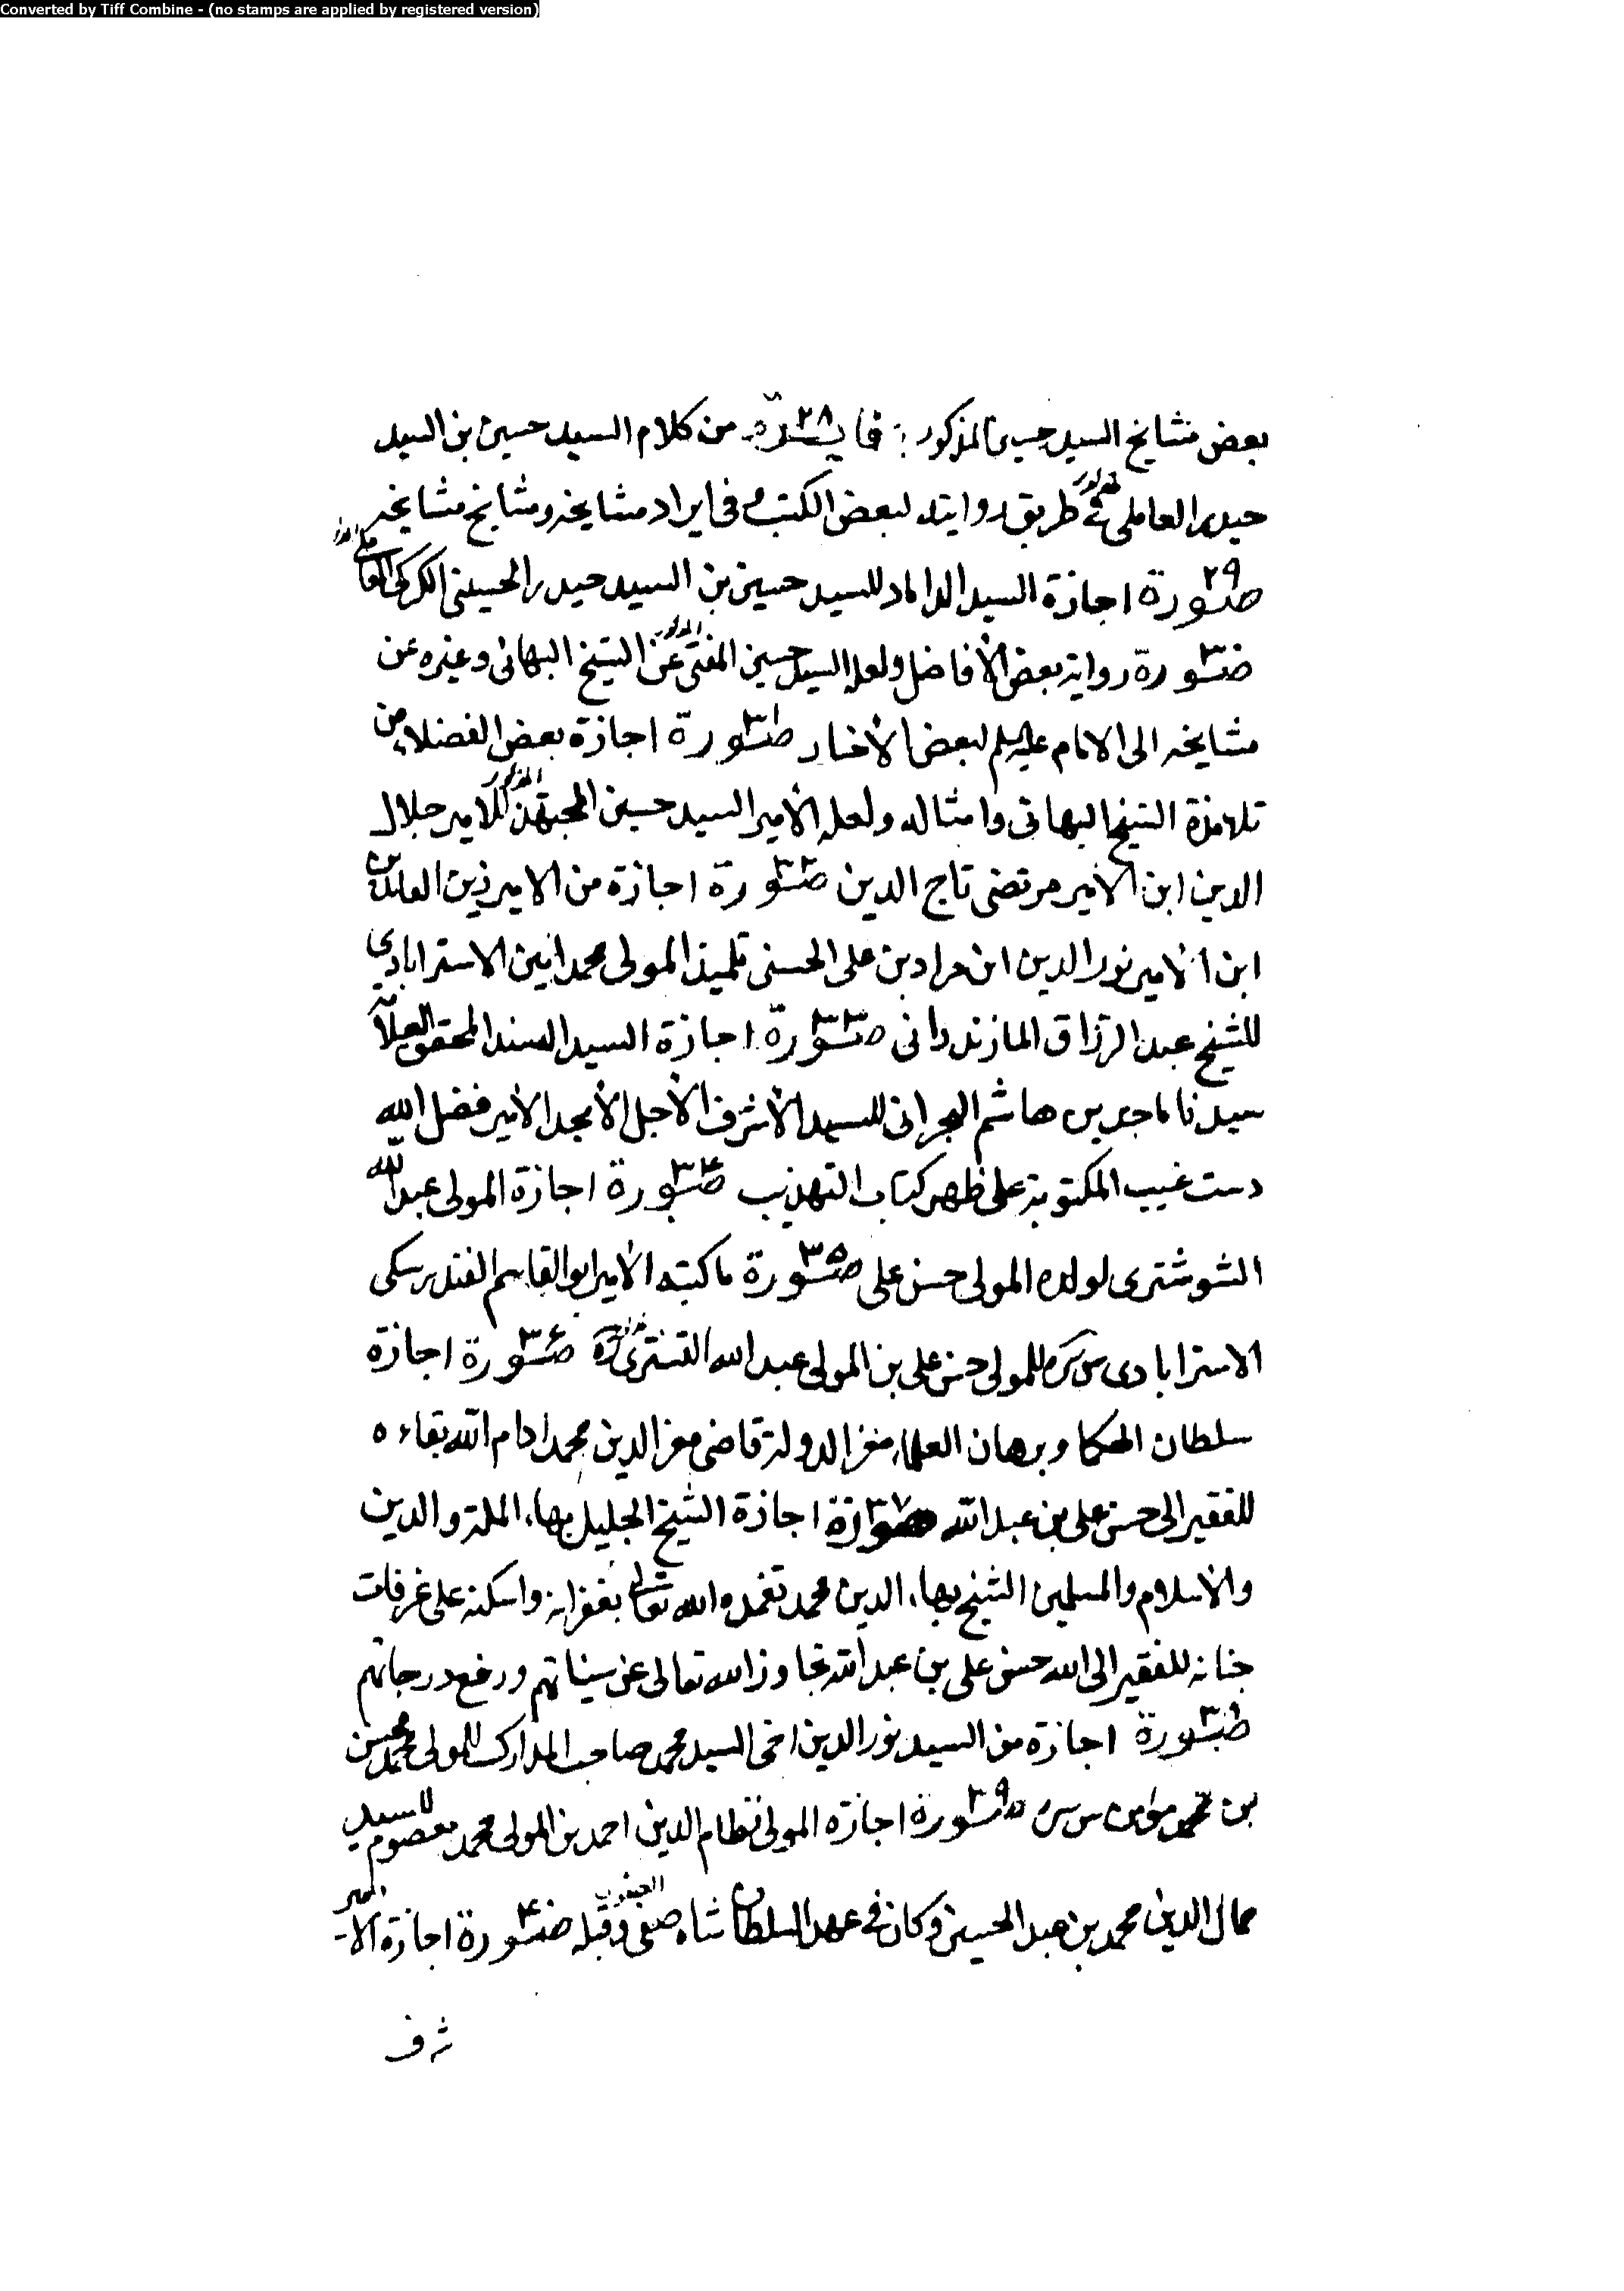 Converted by Tiff Combine - (no stamps are applied by registered version)
بعض مشايخ السيد حسين المذكور : فايدة ٢٨ من كلام السيد حسين بن السيد
حيدر العاملي المذكور في طريق روايته لبعض الكتب و في ايراد مشايخه و مشايخ مشايخه
صورة ٢٩ اجازة السيد الداماد للسيد حسين بن السيد حيدر الحسيني الكركي العاملي المذكور
صورة ٣٠ رواية بعض الأفاضل و لعله السيد حسين المفتي المذكور عن الشيخ البهائي و غيره عن
مشايخه الى الامام عليه السلم لبعض الأخبار صورة ٣١ اجازة بعض الفضلاء من
تلامذة الشيخ البهائي و امثاله و لعله الأمير السيد حسين المجتهد المذكور للامير جلال
الدين ابن الأمير مرتضى تاج الدين صورة ٣٢ اجازة من الامير زين العابدين
ابن الأمير نور الدين ابن مراد بن علي الحسني تلميذ المولى محمد امين الاسترابادي
للشيخ عبد الرزاق المازندراني صورة ٣٣ اجازة السيد السند المحقق العلامة
سيدنا ماجد بن هاشم البحراني للسيد الأشرف الأجل الأمجد الأمير فضل الله
دست غيب المكتوبة على ظهر كتاب التهذيب صورة ٣٤ اجازة المولى عبد الله
الشوشتري لولده المولى حسن علي صورة ٣٥ ما كتبه الأمير ابو القاسم الفندرسكي
الاسترابادي س سره للمولى حسن علي بن المولى عبد الله التستري المذكور صورة ٣٦ اجازة
سلطان الحكما و برهان العلماء معز الدولة قاضي معز الدين محمد ادام الله بقاءه
للفقير الى حسن علي بن عبد الله صورة ٣٧ اجازة الشيخ الجليل بهاء الملة و الدين
و الأسلام و المسلمين الشيخ بهاء الدين محمد تغمده الله تعالى بغفرانه و اسكنه على غرفات
جنانه للفقير الى الله حسن علي بن عبد الله تجاوز الله تعالى عن سيئاتهم و رفع درجاتهم
صورة ٣٨ اجازة من السيد نور الدين اخى السيد محمد صاحب المدارك للمولى محمد محسن
بن محمد مؤمن س سره صورة ٣٩ اجازة المولى نظام الدين احمد بن المولى محمد معصوم للسيد
جمال الدين محمد بن عبد الحسين و كان في عهد السلطان شاه صفي الصفوي و قبله صورة ٤٠ اجازة الأمير
شرف